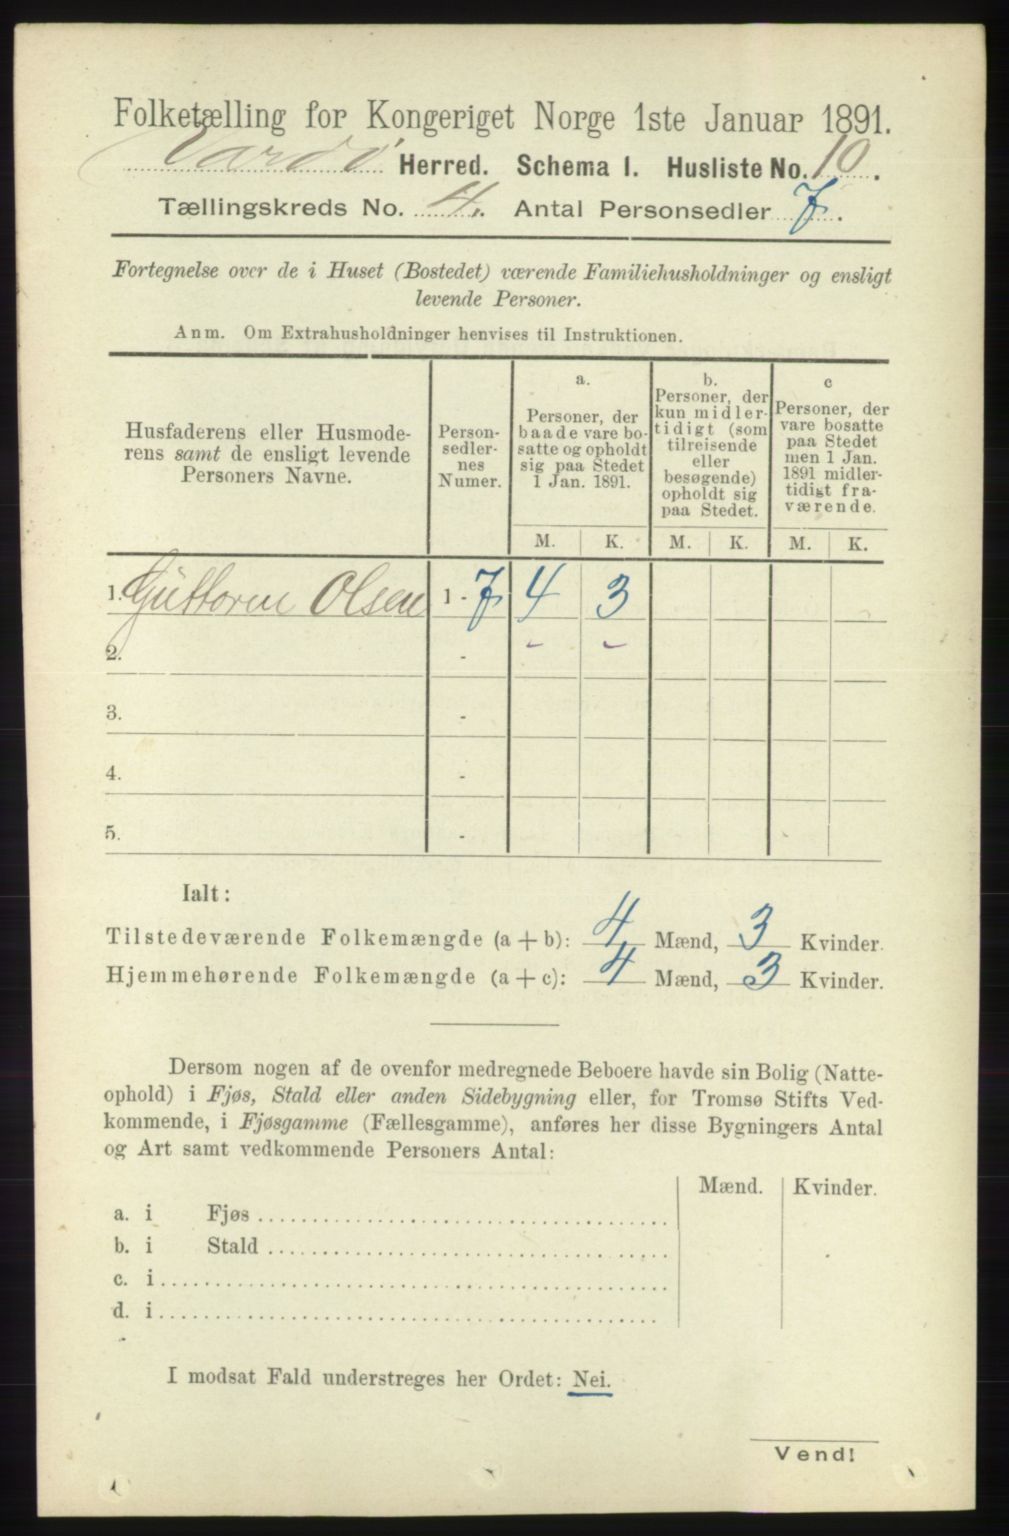 Folketælling for Kongeriget Norge 1ste Januar 1891.
Vardø Herred. Schema I. Husliste No. 10.
Tællingskreds No. 4. Antal Personsedler 7.
Fortegnelse over de i Huset (Bostedet) værende Familiehusholdninger og ensligt
levende Personer.
Anm. Om Extrahusholdninger henvises til Instruktionen.
Husfaderens eller Husmode-
rens samt de ensligt levende
Personers Navne.
Person-
sedler-
nes
Numer.
a.
Personer, der
baade vare bo-
satte og opholdt
sig paa Stedet
1 Jan. 1891.
b.
Personer, der
kun midler-
tidigt (som
tilreisende
eller
besøgende)
opholdt sig
paa Stedet.
c
Personer, der
vare bosatte
paa Stedet
men 1 Jan.
1891 midler-
tidigt fra-
værende.
M. K. M. K. M. K.
1. Guttorm Olsen 1 - 7 4 3
2. -
3. -
4. -
5. -
Ialt:
Tilstedeværende Folkemængde (a + b): 4 Mænd, 3 Kvinder.
Hjemmehørende Folkemængde (a + c): 4 Mænd, 3 Kvinder.
Dersom nogen af de ovenfor medregnede Beboere havde sin Bolig (Natte-
ophold) i Fjøs, Stald eller anden Sidebygning eller, for Tromsø Stifts Ved-
kommende, i Fjøsgamme (Fællesgamme), anføres her disse Bygningers Antal
og Art samt vedkommende Personers Antal:
Mænd. Kvinder.
a. i Fjøs
b. i Stald
c. i
d. i
I modsat Fald understreges her Ordet: Nei.
Vend!